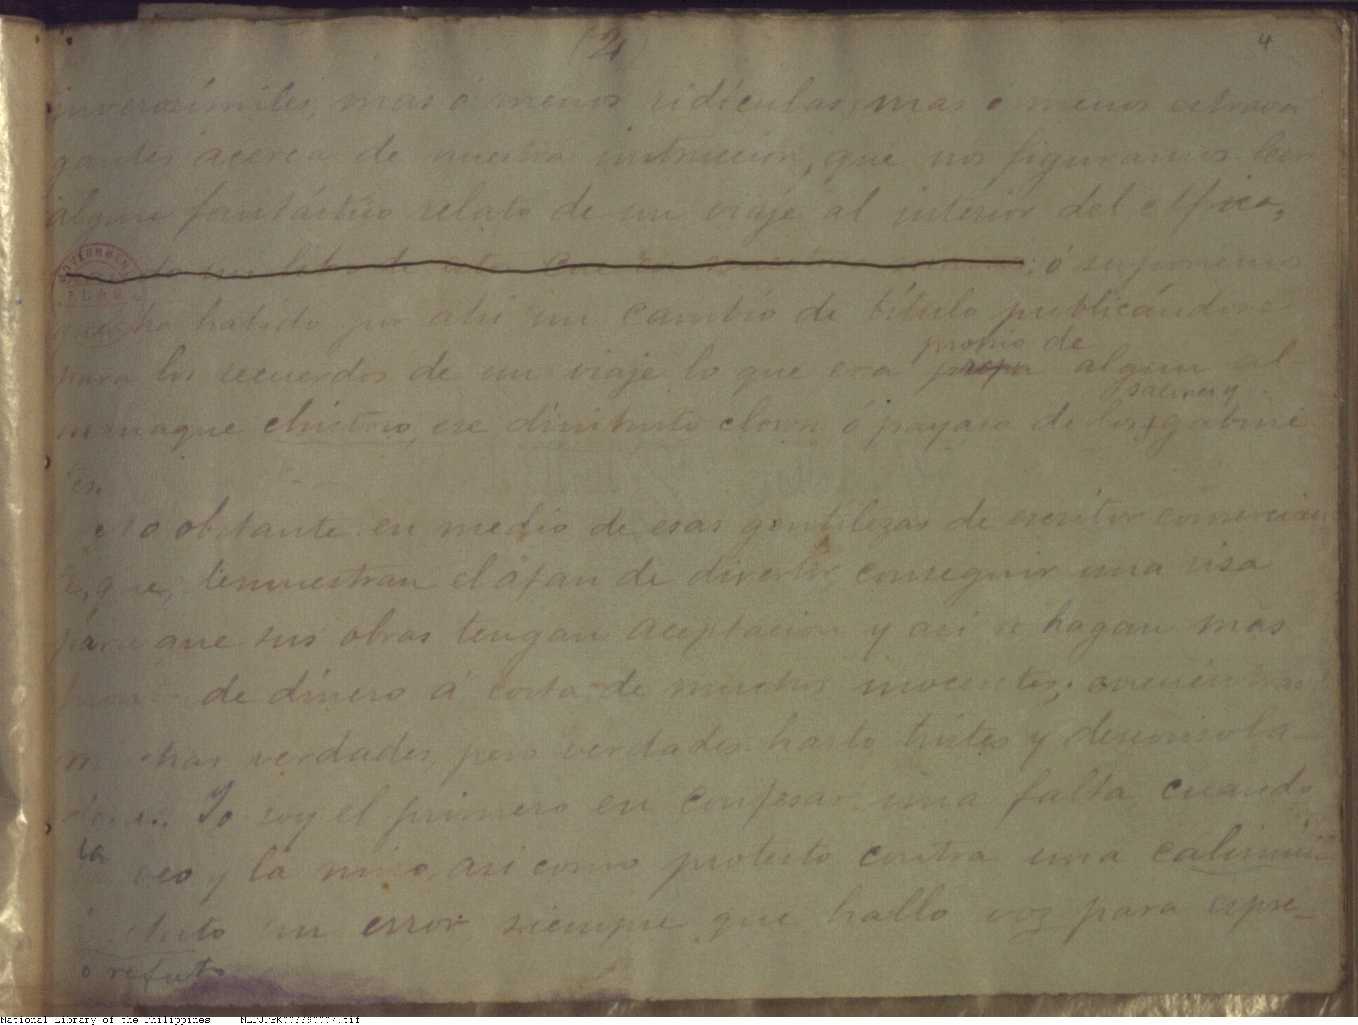 (2) 4
inverosímiles, mas ó menos ridículas, mas ó menos estrava
gantes acerca de nuestra instruccion, que nos figuramos leer
algun fantástico relato de un viaje al interior del Africa,
ó suponemos
que ha habido por ahí un cambio de título publicándose
propio de
para los recuerdos de un viaje lo que era algun al
salones y
manaque chistoso, ese diminuto clown ó payaso de los gabine
tes.
No obstante en medio de esas gentilezas de escritor comercian
te, que demuestran el afan de divertir, conseguir una risa
para que sus obras tengan aceptacion y asi se hagan mas
de dinero á costa de muchos inocentes,
muchas verdades, pero verdades harto tristes y desconsola-
doras. Yo soy el primero en confesar una falta cuando
la
veo y la miro, asi como protesto contra una
un error siempre que hallo voz para espre-
ó refuto
GOVERNMENT
National Library of the Philippines